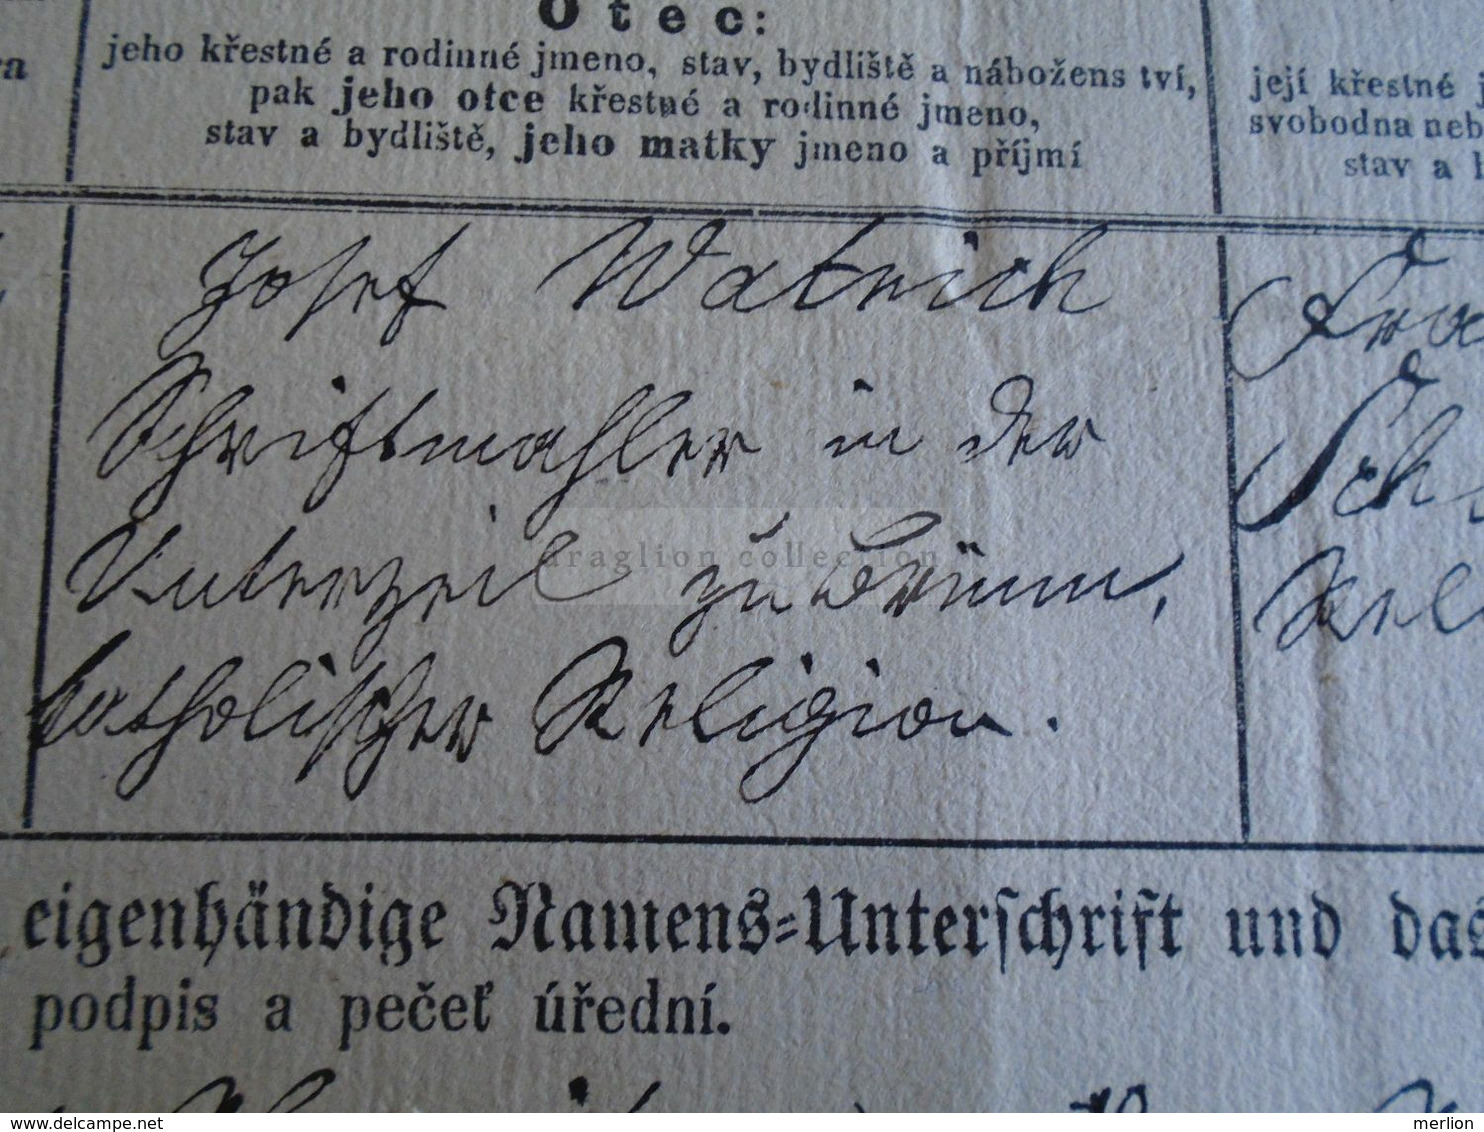 Otec:
jeho křestné a rodinné jmeno, stav, bydliště a nábožens tví,
pak jeho otce křestné a rodinné jmeno,
stav a bydliště, jeho matky jmeno a příjmí
její křestné
svobodna neb
stav a
Josef Watrich
Schriftmahler in der
Unterzeil zu Brünn,
katholischer Religion.
Sch
Rel
draglion collection
eigenhändige Namens-Unterschrift und das
podpis a pečeť úřední.
www.delcampe.net
merlion